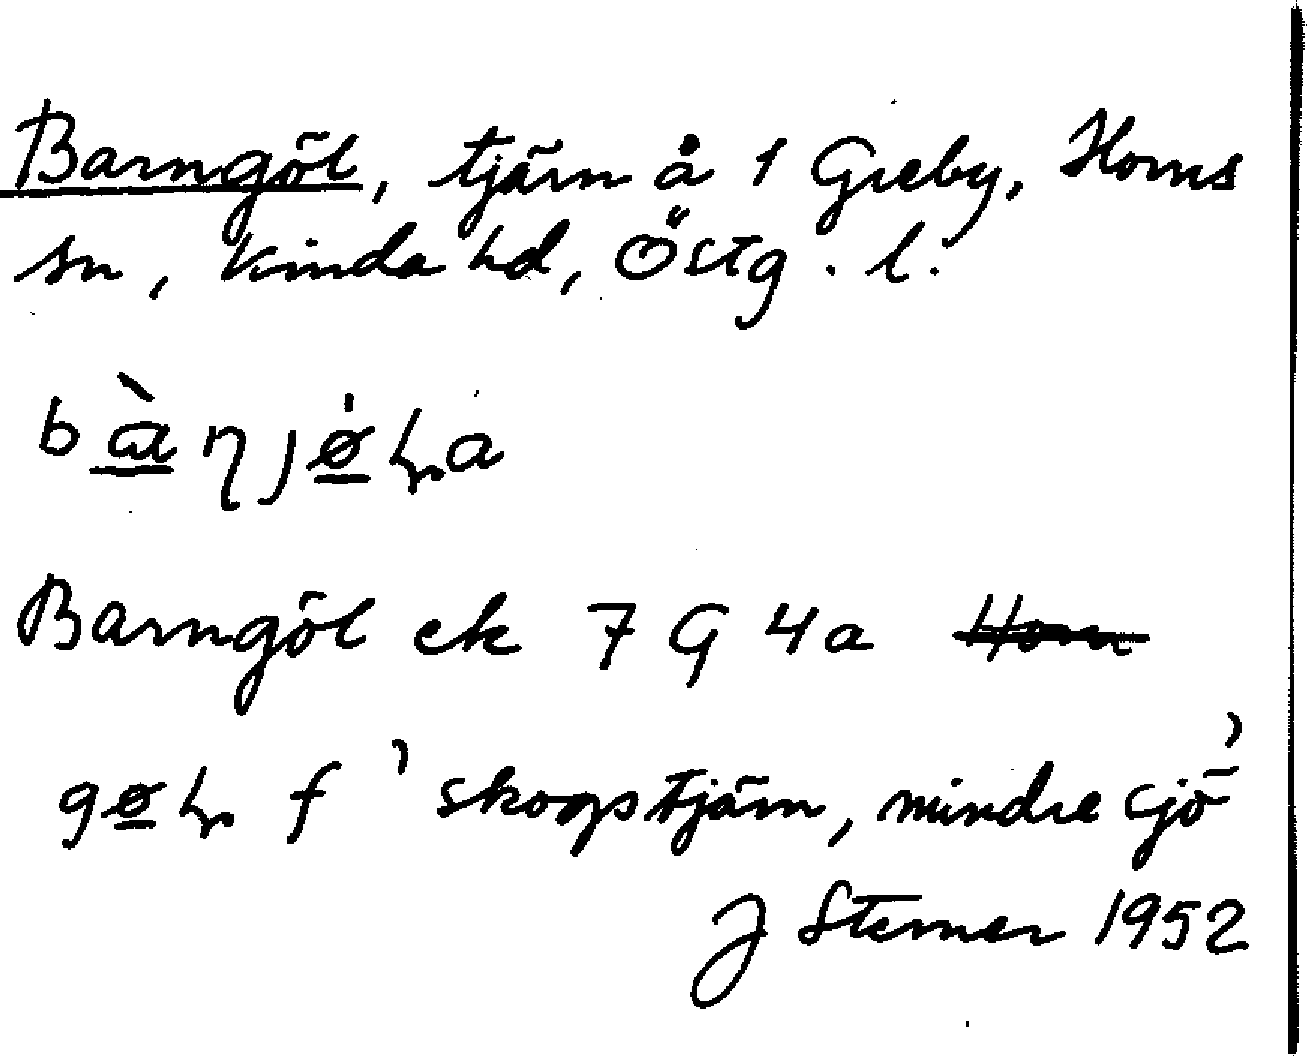 Barngöl, tjärn å 1 Greby, Horns
sn, Kinda hd, Östg. l.
Barngöl ek 7 G 4a Horn
f 'skogstjärn, mindre sjö'
J Sterner 1952